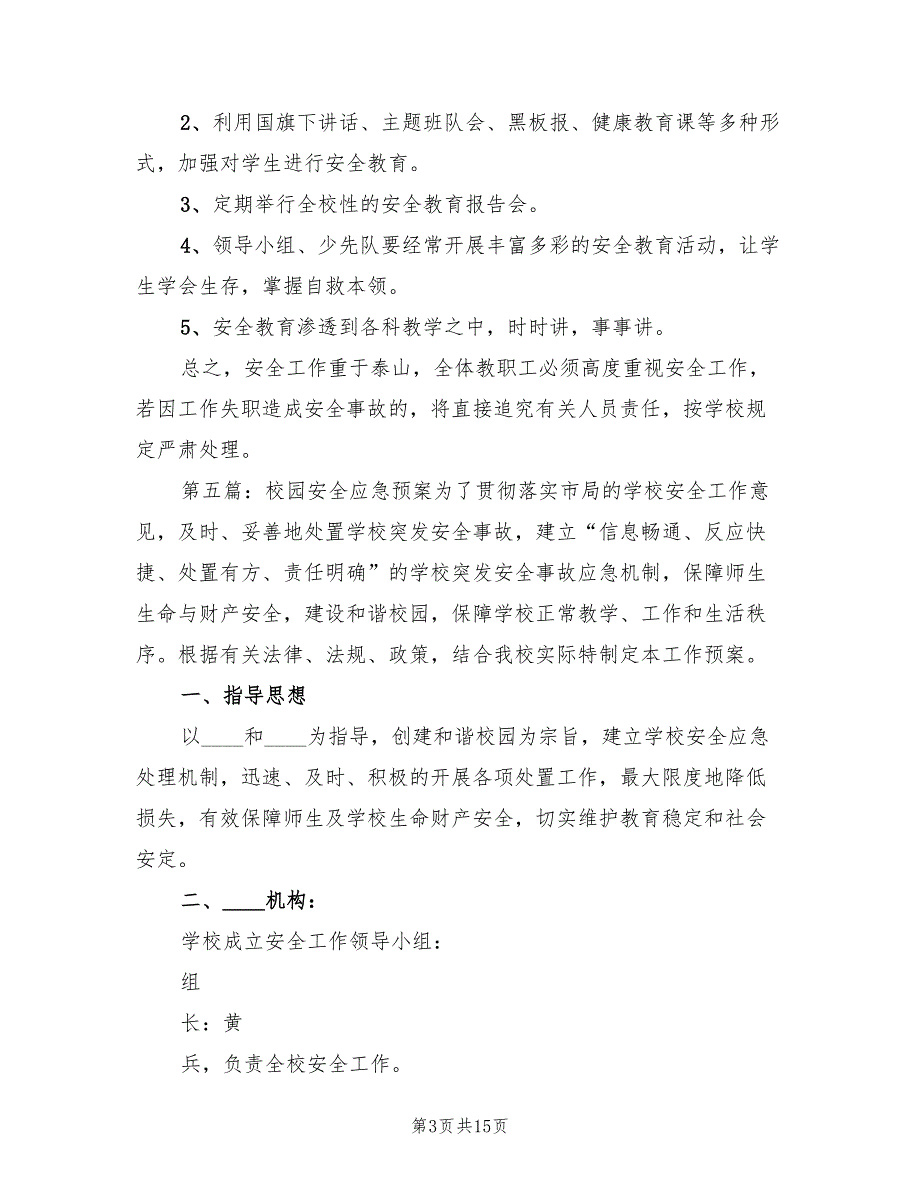 2、利用国旗下讲话、主题班队会、黑板报、健康教育课等多种形
式，加强对学生进行安全教育。
3、定期举行全校性的安全教育报告会。
4、领导小组、少先队要经常开展丰富多彩的安全教育活动，让学
生学会生存，掌握自救本领。
5、安全教育渗透到各科教学之中，时时讲，事事讲。
总之，安全工作重于泰山，全体教职工必须高度重视安全工作，
若因工作失职造成安全事故的，将直接追究有关人员责任，按学校规
定严肃处理。
第五篇：校园安全应急预案为了贯彻落实市局的学校安全工作意
见，及时、妥善地处置学校突发安全事故，建立“信息畅通、反应快
捷、处置有方、责任明确”的学校突发安全事故应急机制，保障师生
生命与财产安全，建设和谐校园，保障学校正常教学、工作和生活秩
序。根据有关法律、法规、政策，结合我校实际特制定本工作预案。
一、指导思想
以____和____为指导，创建和谐校园为宗旨，建立学校安全应急
处理机制，迅速、及时、积极的开展各项处置工作，最大限度地降低
损失，有效保障师生及学校生命财产安全，切实维护教育稳定和社会
安定。
二、____机构：
学校成立安全工作领导小组：
组
长：黄
兵，负责全校安全工作。
第3页共15页